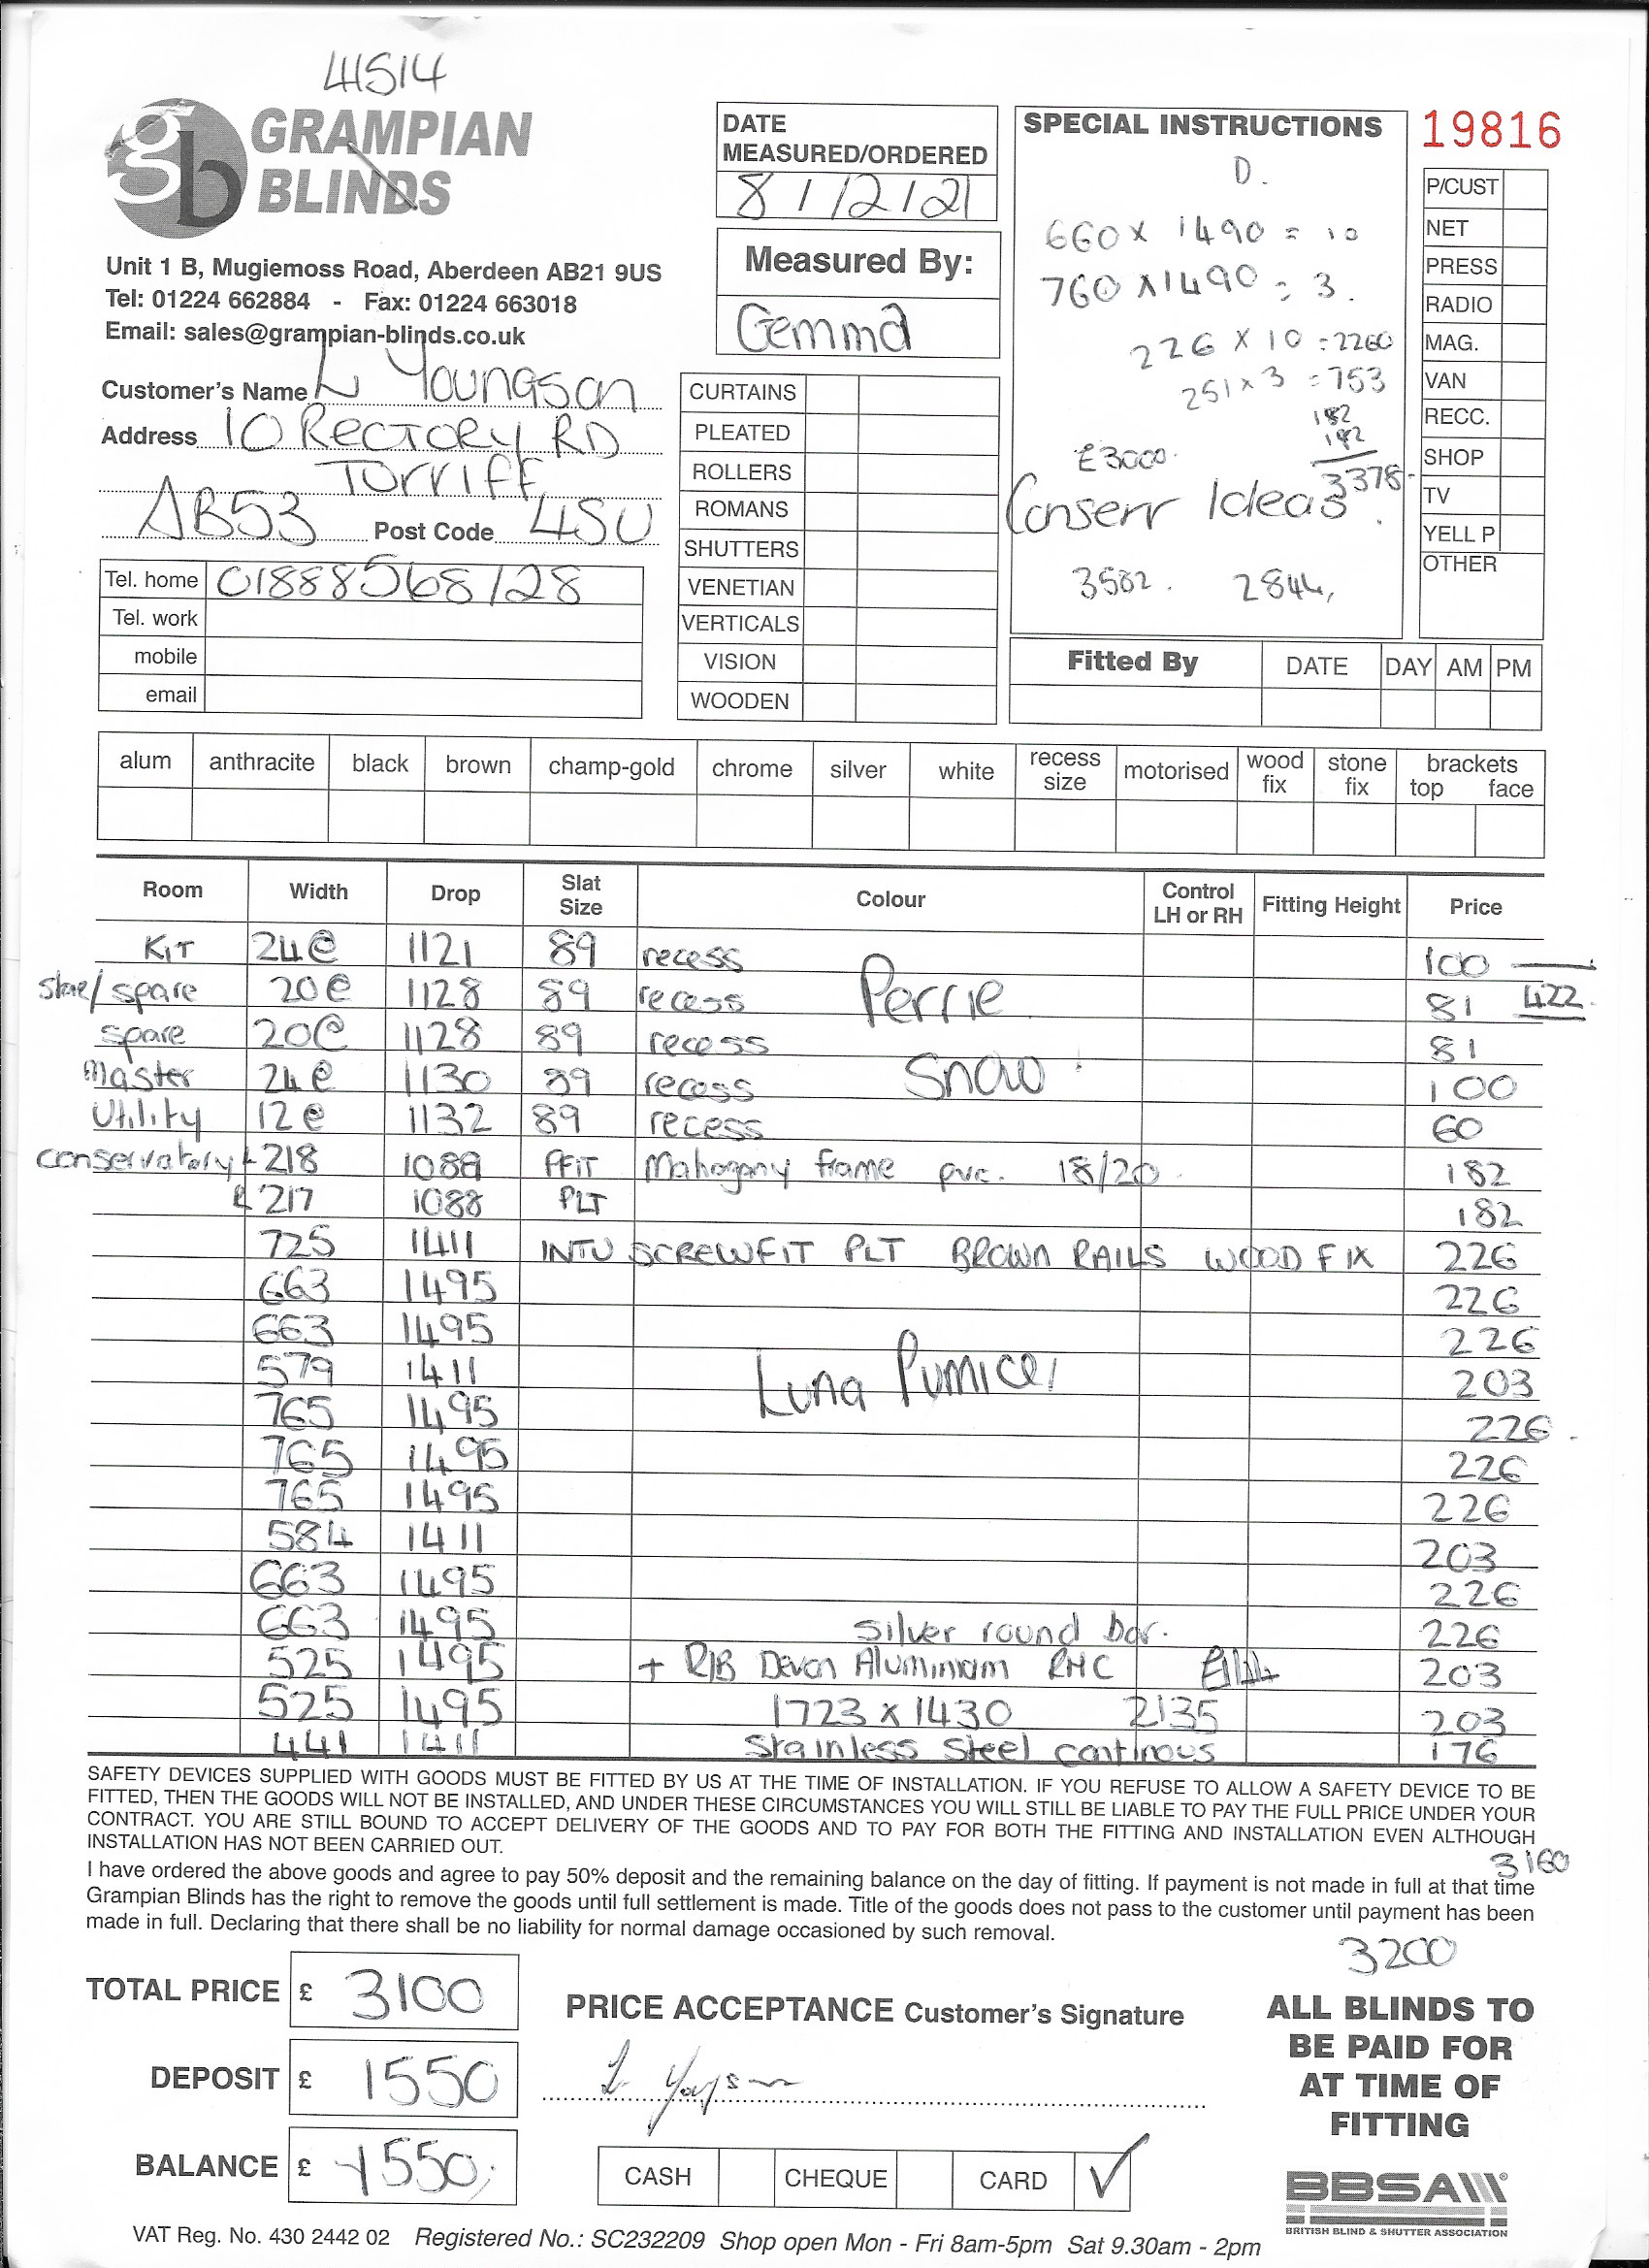 41514
gb GRAMPIAN
BLINDS
Unit 1 B, Mugiemoss Road, Aberdeen AB21 9US
Tel: 01224 662884 - Fax: 01224 663018
Email: sales@grampian-blinds.co.uk
Customer's Name L Youngson
Address 10 Rectory RD
Torriff
AB53 Post Code 4SU
Tel. home 01888568128
Tel. work
mobile
email
DATE
MEASURED/ORDERED
8/12/21
Measured By:
Gemma
CURTAINS
PLEATED
ROLLERS
ROMANS
SHUTTERS
VENETIAN
VERTICALS
VISION
WOODEN
SPECIAL INSTRUCTIONS
D.
660 x 1490 = 10
760 x 1490 = 3.
226 x 10 = 2260
251 x 3 = 753
182
182
£3000. 3378-
Conserv Ideas.
3582. 2844,
19816
P/CUST
NET
PRESS
RADIO
MAG.
VAN
RECC.
SHOP
TV
YELL P
OTHER
Fitted By DATE DAY AM PM
alum anthracite black brown champ-gold chrome silver white recess size motorised wood fix stone fix brackets top face
Room Width Drop Slat Size Colour Control LH or RH Fitting Height Price
KIT 24e 1121 89 recess 100
/spare 20e 1128 89 recess Perrie 81 422.
spare 20e 1128 89 recess 81
Master 24e 1130 89 recess Snow 100
Utility 12e 1132 89 recess 60
conservatory L 218 1089 PFIT Mahogany frame pvc. 18/20 182
R 217 1088 PLT 182
725 1411 INTU SCREWFIT PLT BROWN RAILS WOOD FIX 226
663 1495 226
663 1495 226
579 1411 Luna Pumice 203
765 1495 226
765 1495 226
765 1495 226
584 1411 203
663 1495 226
663 1495 silver round bar. 226
525 1495 + R/B Devon Aluminium RHC 203
525 1495 1723 x 1430 2135 203
441 1411 Stainless Steel continous 176
SAFETY DEVICES SUPPLIED WITH GOODS MUST BE FITTED BY US AT THE TIME OF INSTALLATION. IF YOU REFUSE TO ALLOW A SAFETY DEVICE TO BE
FITTED, THEN THE GOODS WILL NOT BE INSTALLED, AND UNDER THESE CIRCUMSTANCES YOU WILL STILL BE LIABLE TO PAY THE FULL PRICE UNDER YOUR
CONTRACT. YOU ARE STILL BOUND TO ACCEPT DELIVERY OF THE GOODS AND TO PAY FOR BOTH THE FITTING AND INSTALLATION EVEN ALTHOUGH
INSTALLATION HAS NOT BEEN CARRIED OUT.
3160
I have ordered the above goods and agree to pay 50% deposit and the remaining balance on the day of fitting. If payment is not made in full at that time
Grampian Blinds has the right to remove the goods until full settlement is made. Title of the goods does not pass to the customer until payment has been
made in full. Declaring that there shall be no liability for normal damage occasioned by such removal.
3200
TOTAL PRICE £ 3100
DEPOSIT £ 1550
BALANCE £ 1550
PRICE ACCEPTANCE Customer's Signature
CASH CHEQUE CARD ✓
ALL BLINDS TO
BE PAID FOR
AT TIME OF
FITTING
BBSA
BRITISH BLIND & SHUTTER ASSOCIATION
VAT Reg. No. 430 2442 02 Registered No.: SC232209 Shop open Mon - Fri 8am-5pm Sat 9.30am - 2pm